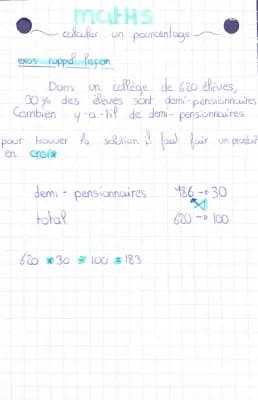 maths
calculer un pourcentage
exos rappel leçon
Dans un collège de 620 élèves,
30% des élèves sont demi-pensionnaires
Combien y-a-t-il de demi-pensionnaires
pour trouver la solution il faut fair un produit
en croix
demi-pensionnaires 186 → 30
total 620 → 100
620 × 30 ÷ 100 = 183